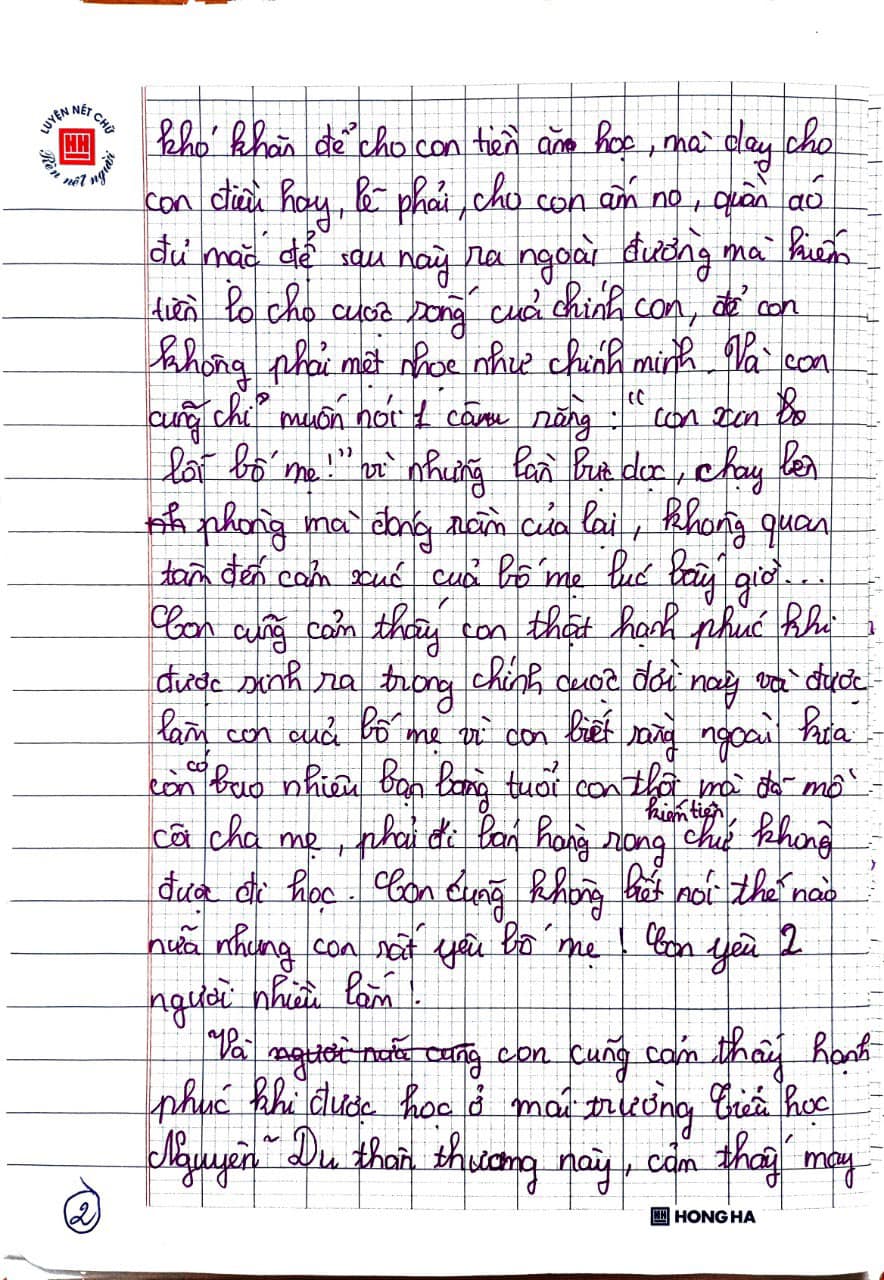 LUYỆN NÉT CHỮ
HH
Rèn nết người
khó khăn để cho con tiền ăn học, mà dạy cho
con điều hay, lẽ phải, cho con ấm no, quần áo
đủ mặc để sau này ra ngoài đường mà kiếm
tiền lo cho cuộc sống của chính con, để con
không phải mệt nhọc như chính mình. Và con
cũng chỉ muốn nói 1 câu rằng: "con xin
lỗi bố mẹ!" vì những lần bực dọc, chạy lên
phòng mà đóng rầm cửa lại, không quan
tâm đến cảm xúc của bố mẹ lúc bấy giờ...
Con cũng cảm thấy con thật hạnh phúc khi
được sinh ra trong chính cuộc đời này và được
làm con của bố mẹ vì con biết rằng ngoài kia
còn có bao nhiêu bạn bằng tuổi con thôi mà đã mồ
kiếm tiền
côi cha mẹ, phải đi bán hàng rong chứ không
được đi học. Con cũng không biết nói thế nào
nữa nhưng con rất yêu bố mẹ! Con yêu 2
người nhiều lắm!
Và người nữa cũng con cũng cảm thấy hạnh
phúc khi được học ở mái trường Tiểu học
Nguyễn Du thân thương này, cảm thấy may
2
HH HONG HA